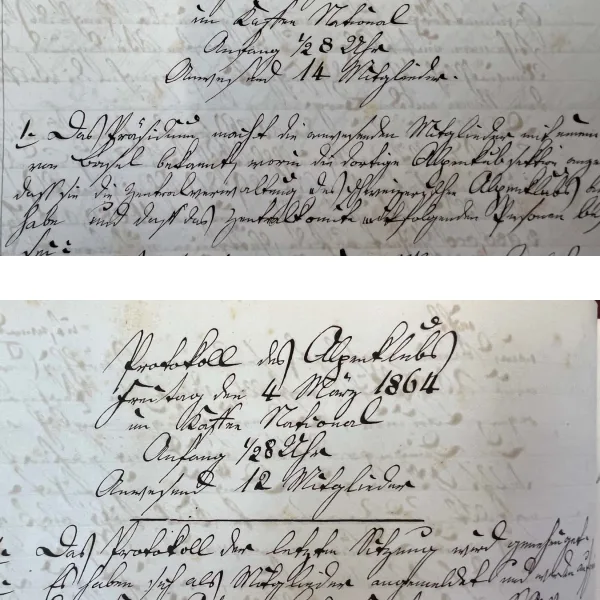 im Kaffee National
Anfang ½ 8 Uhr
Anwesend 14 Mitglieder.
1. Das Präsidium macht die anwesenden Mitglieder mit einem
von Basel bekannt, worin die dortige Alpenklubsektion ange
daß sie die Zentralverwaltung des schweizerischen Alpenklubs
habe und daß das Zentralkomite aus folgenden Personen be
sei:
Protokoll des Alpenklubs
Freitag den 4 März 1864
im Kaffee National
Anfang ½8 Uhr
Anwesend 12 Mitglieder
Das Protokoll der letzten Sitzung wird genehmigt.
Es haben sich als Mitglieder angemeldet und werden